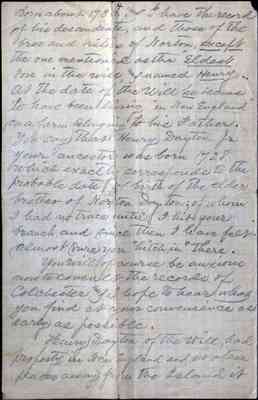 Born about 1735. I have the record
of his descendants, and those of the
bros and sisters of Norton, except
the one mentioned as the Eldest
Son in the will & named Henry.
At the date of the Will he seems
to have been living in New England
on a farm belonging to his Father.
You say that Henry Dayton Jr
your ancestor was born 1728
which exactly corresponds to the
probable date of birth of the elder
brother of Norton Dayton, of whom
I had no trace until I hit your
branch and since then I have felt
almost sure you "hitch in" there.
You will of course be anxious
now to consult the records of
Colchester & I hope to hear what
you find at your convenience as
early as possible.
Henry Dayton of the will, had
property in New England and
places away from the Island it